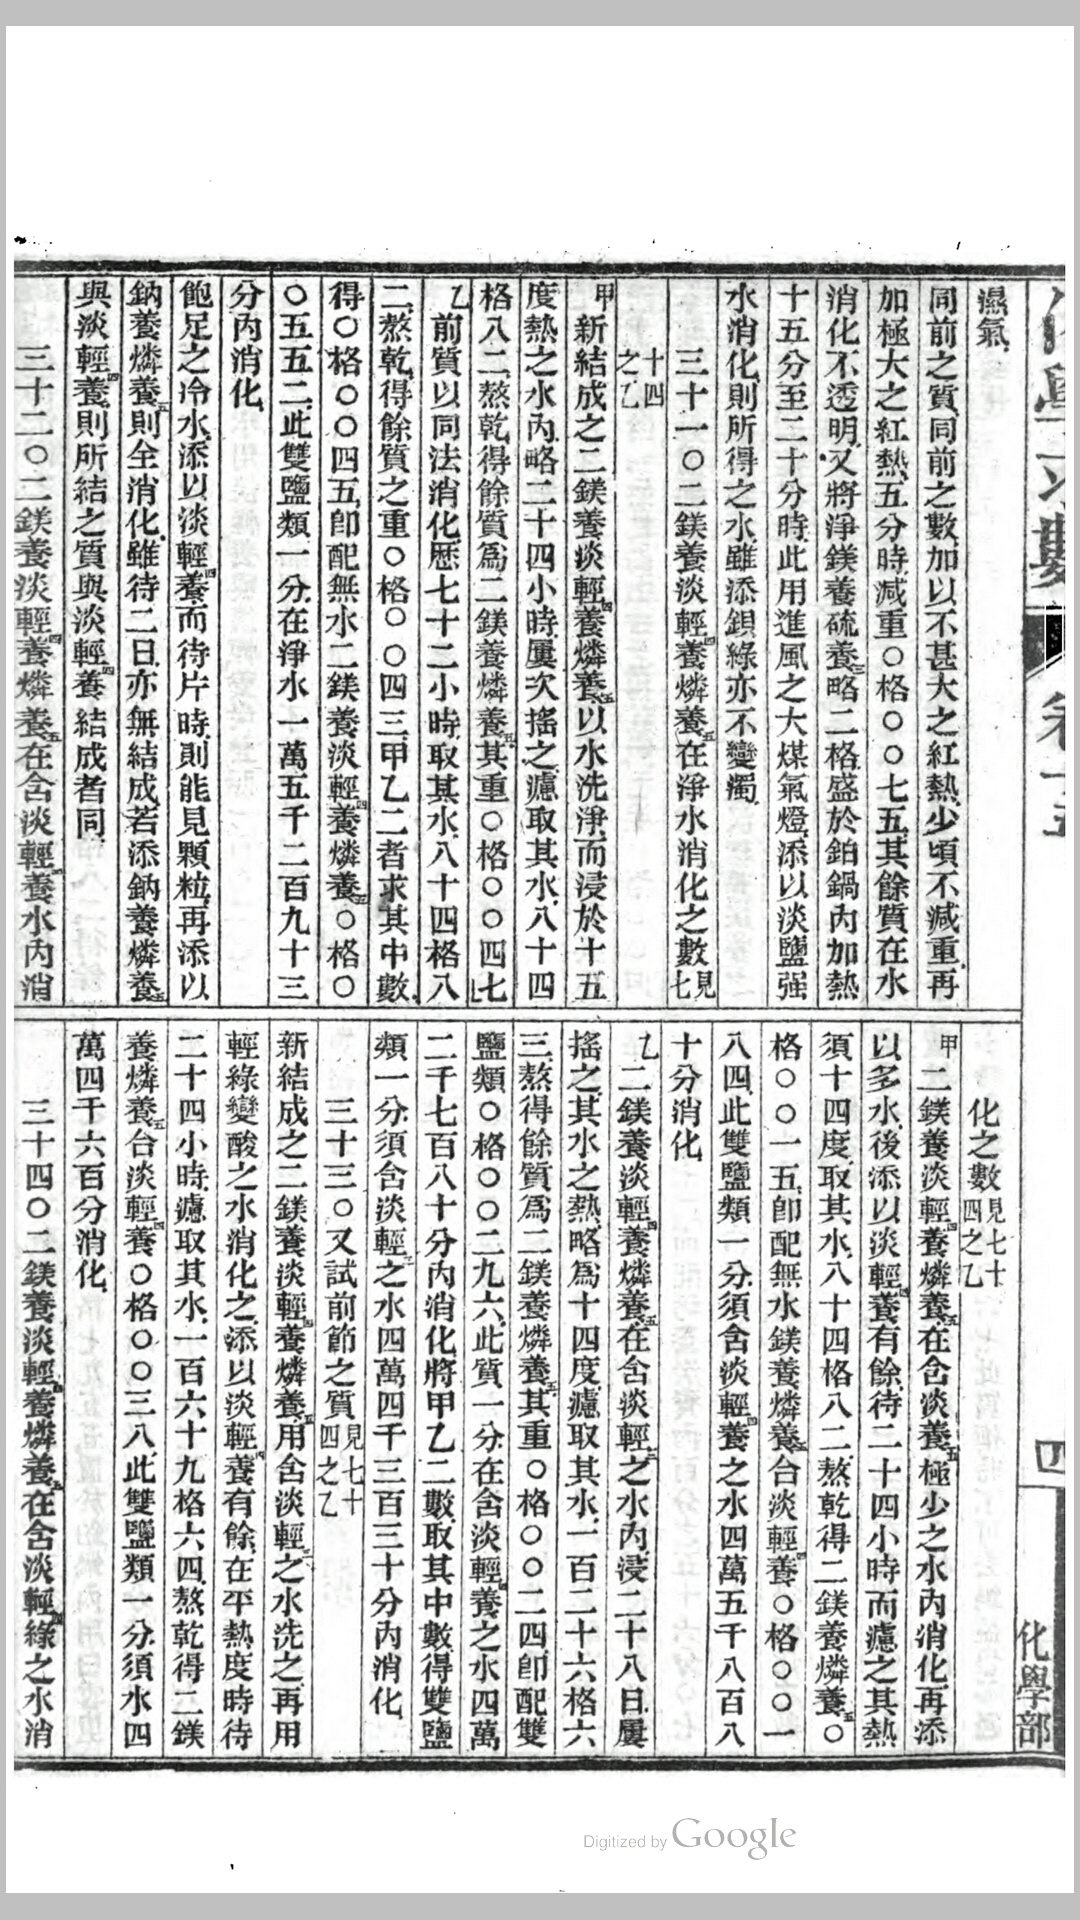 濕氣
同前之質、同前之數、加以不甚大之紅熱、少頃不減重、再
加極大之紅熱、五分時、減重〇格〇〇七五、其餘質在水
消化不透明、又將淨鎂養硫養三略二格、盛於鉑鍋內加熱
十五分至二十分時、此用進風之大煤氣燈、添以淡鹽强
水消化、則所得之水、雖添鋇綠亦不變濁、
三十一〇二鎂養淡輕四養燐養五在淨水消化之數見七
十四之乙
甲新結成之二鎂養淡輕四養燐養五以水洗淨、而浸於十五
度熱之水內、略二十四小時、屢次搖之、濾取其水、八十四
格八二、熬乾、得餘質爲二鎂養燐養五其重〇格〇〇四七
乙前質以同法消化、歷七十二小時、取其水、八十四格八
二、熬乾、得餘質之重〇格〇〇四三、甲乙二者求其中數、
得〇格〇〇四五、卽配無水二鎂養淡輕四養燐養五〇格〇
〇五五二、此雙鹽類一分、在淨水一萬五千二百九十三
分內消化、
飽足之冷水、添以淡輕四養而待片時、則能見顆粒、再添以
鈉養燐養五則全消化、雖待二日、亦無結成、若添鈉養燐養五
與淡輕四養、則所結之質與淡輕四養結成者同、
三十二〇二鎂養淡輕四養燐養五在含淡輕四養水內消
化之數見七十四之乙
甲二鎂養淡輕四養燐養五在含淡養五極少之水內消化、再添
以多水、後添以淡輕四養有餘、待二十四小時而濾之、其熱
須十四度、取其水、八十四格八二、熬乾得二鎂養燐養五〇
格〇〇一五、卽配無水鎂養燐養五合淡輕四養〇格〇〇一
八四、此雙鹽類一分、須含淡輕四養之水四萬五千八百八
十分消化、
乙二鎂養淡輕四養燐養五在含淡輕三之水內、浸二十八日、屢
搖之、其水之熱、略爲十四度、濾取其水、一百二十六格六
三、熬得餘質爲二鎂養燐養五其重〇格〇〇二四、卽配雙
鹽類〇格〇〇二九六、此質一分、在含淡輕四養之水四萬
二千七百八十分內消化、將甲乙二數、取其中數、得雙鹽
類一分、須含淡輕三之水四萬四千三百三十分內消化、
三十三〇又試前節之質見七十四之乙
新結成之二鎂養淡輕四養燐養五用含淡輕三之水洗之、再用
輕綠變酸之水消化之、添以淡輕四養有餘、在平熱度時、待
二十四小時、濾取其水、一百六十九格六四、熬乾得二鎂
養燐養五合淡輕四養〇格〇〇三八、此雙鹽類一分、須水四
萬四千六百分消化、
三十四〇二鎂養淡輕四養燐養五在含淡輕四綠之水消
四
化學部
Digitized by Google